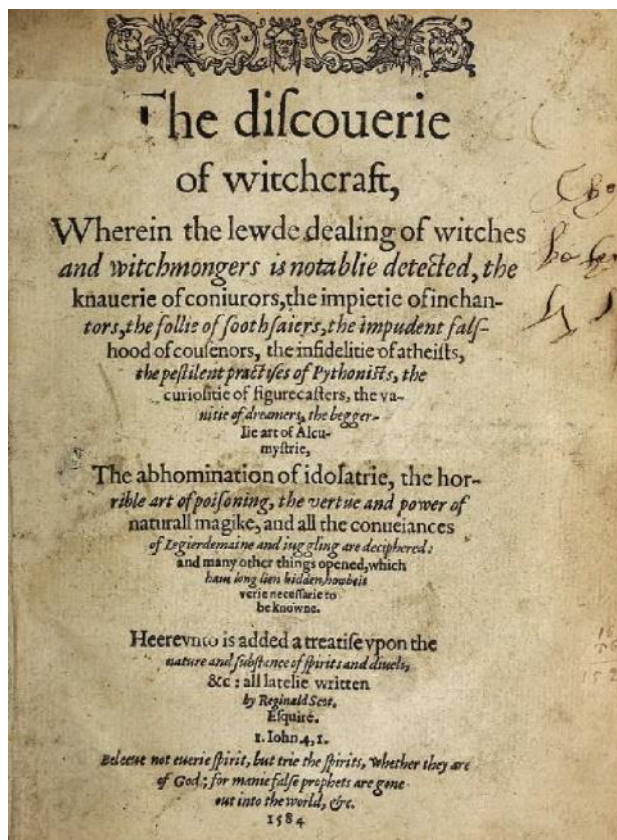 The diſcouerie
of witchcraft,
Wherein the lewde dealing of witches
and witchmongers is notablie detected, the
knauerie of coniurors, the impietie of inchan-
tors, the follie of ſoothſaiers, the impudent falſ-
hood of couſenors, the infidelitie of atheiſts,
the peſtilent practiſes of Pythoniſts, the
curioſitie of figurecaſters, the va-
nitie of dreamers, the begger-
lie art of Alcu-
myſtrie,
The abhomination of idolatrie, the hor-
rible art of poiſoning, the vertue and power of
naturall magike, and all the conueiances
of Legierdemaine and iuggling are deciphered:
and many other things opened, which
haue long lien hidden, howbeit
verie neceſſarie to
be knowne.
Heerevnto is added a treatiſe vpon the
nature and ſubſtance of ſpirits and diuels,
&c: all latelie written
by Reginald Scot,
Eſquire.
1. Iohn. 4, 1.
Beleeue not euerie ſpirit, but trie the ſpirits, whether they are
of God; for manie falſe prophets are gone
out into the world, &c.
1584